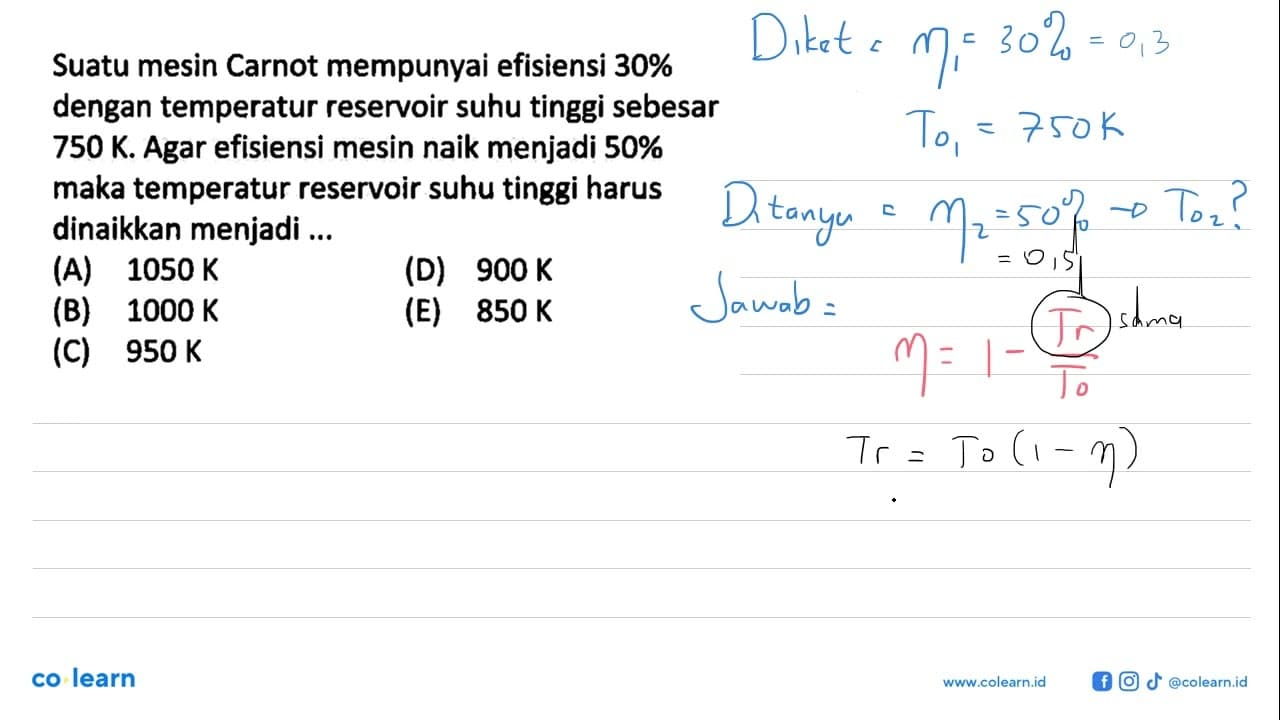 Suatu mesin Carnot mempunyai efisiensi 30%
dengan temperatur reservoir suhu tinggi sebesar
750 K. Agar efisiensi mesin naik menjadi 50%
maka temperatur reservoir suhu tinggi harus
dinaikkan menjadi ...
(A) 1050 K (D) 900 K
(B) 1000 K (E) 850 K
(C) 950 K
Diket = η₁ = 30% = 0,3
To₁ = 750 K
Ditanya = η₂ = 50% → To₂?
= 0,5
Jawab =
η = 1 - Tr/To sama
Tr = To (1 - η)
co·learn
www.colearn.id
@colearn.id